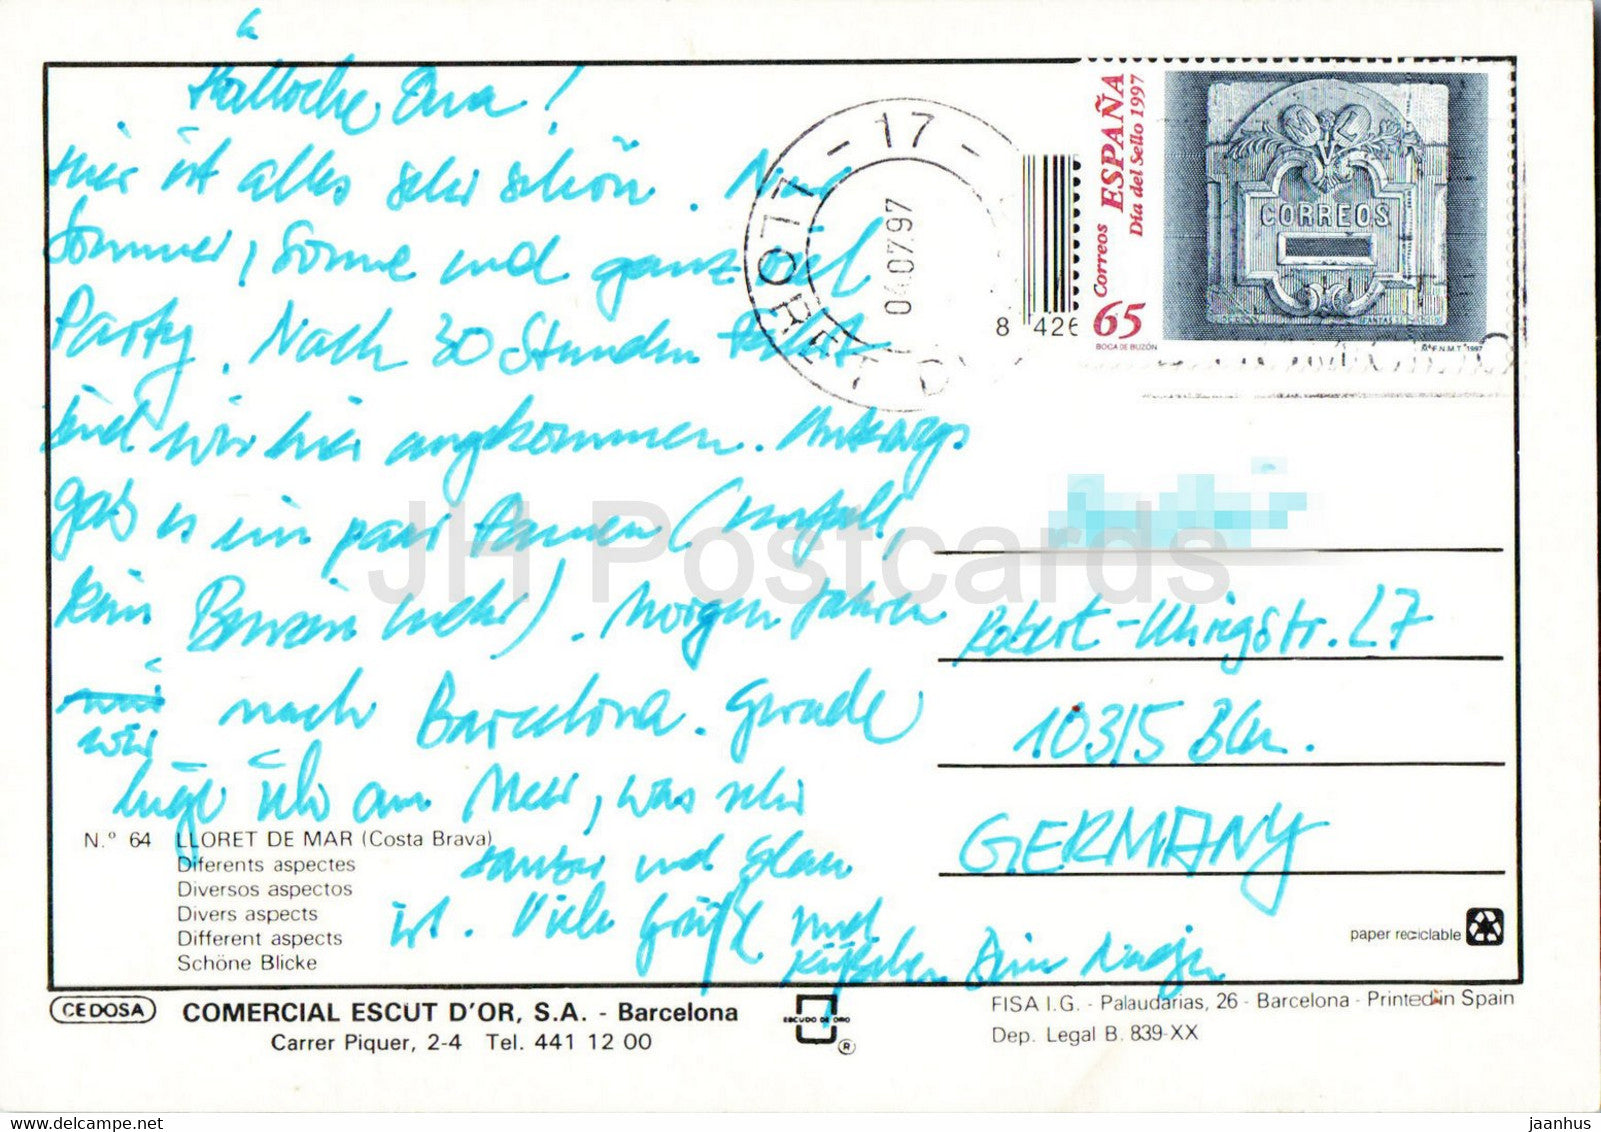 Hallöche Oma!
Hier ist alles sehr schön. Nur
Sommer, Sonne und ganz viel
Party. Nach 30 Stunden Fahrt
sind wir hier angekommen. Unterwegs
gab es ein paar Pannen (Unfall,
kein Benzin mehr). Morgen fahren
wir nach Barcelona. Gerade
liege ich am Meer, was sehr
sauber und blau
ist. Viele Grüße und
Küßchen Deine Nadja
LLORET
17
04.07.97
8 426
Correos ESPAÑA
Día del Sello 1997
65
BOCA DE BUZÓN
CORREOS
F.N.M.T. 1997
Robert-Uhrigstr. 27
10315 Bln.
GERMANY
N.º 64 LLORET DE MAR (Costa Brava)
Diferents aspectes
Diversos aspectos
Divers aspects
Different aspects
Schöne Blicke
paper reciclable
CEDOSA COMERCIAL ESCUT D'OR, S.A. - Barcelona
Carrer Piquer, 2-4 Tel. 441 12 00
ESCUDO DE ORO
®
FISA I.G. - Palaudarias, 26 - Barcelona - Printed in Spain
Dep. Legal B. 839-XX
JH Postcards
delcampe.net
jaanhus